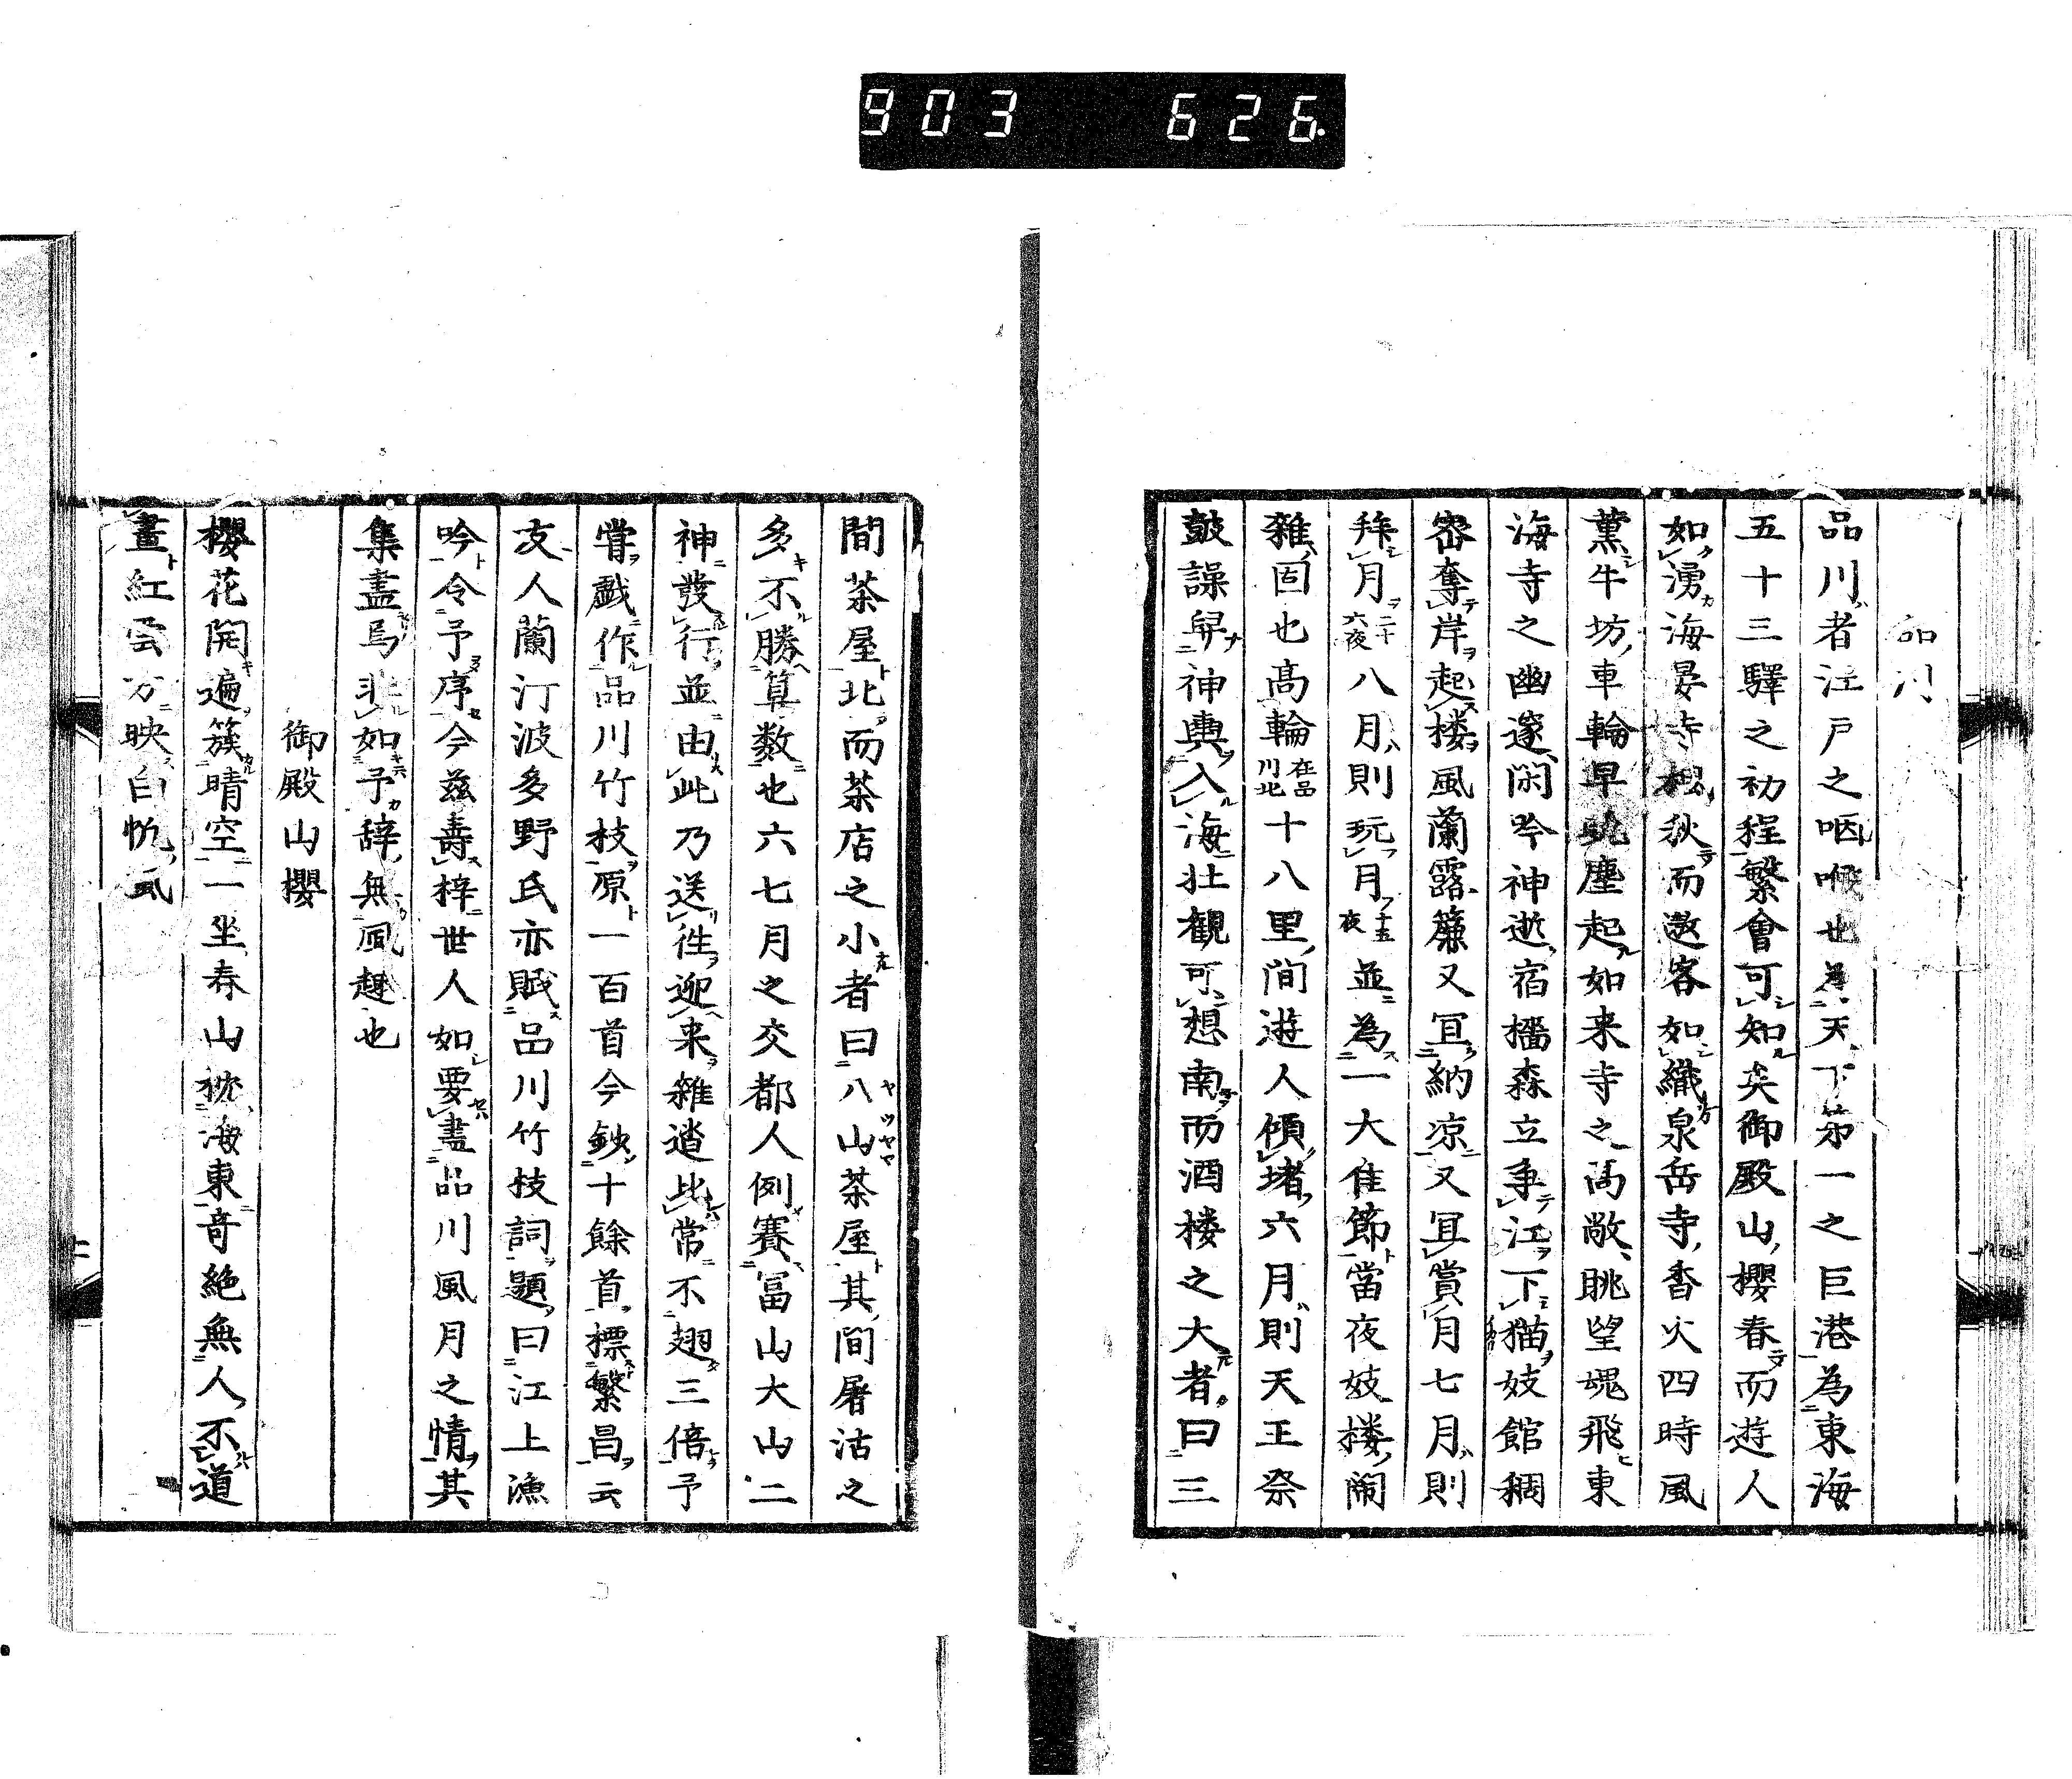 903 626
品川
品川者江戸之咽喉也為天下第一之巨港為東海
五十三驛之初程繁會可知矣御殿山櫻春而遊人
如湧海晏寺楓秋而遨客如織泉岳寺香火四時風
薫牛坊車輪早晩塵起如来寺之高敞眺望魂飛東
海寺之幽邃閑吟神逝宿檣森立爭江下猫妓館稠
密奪岸起楼風蘭露簾又冝納凉又冝賞月七月則
拜月二十六夜八月則玩月十五夜並為一大佳節當夜妓楼閙
雜固也髙輪在品川北十八里間遊人傾堵六月則天王祭
鼓譟舁神輿入海壮観可想南而酒楼之大者曰三
間茶屋北而茶店之小者曰八山茶屋其間屠沽之
多不勝算数也六七月之交都人例賽冨山大山二
神發行並由此乃送徃迎来雜遝比常不翅三倍予
嘗戯作品川竹枝原一百首今鈔十餘首標繁昌云
友人蘭汀波多野氏亦賦品川竹枝詞題曰江上漁
吟令予序今茲壽梓世人如要盡品川風月之情其
集盡焉非如予辞無風趣也
御殿山櫻
櫻花開遍簇晴空一坐春山枕海東奇絶無人不道
畫紅雲万映白帆風